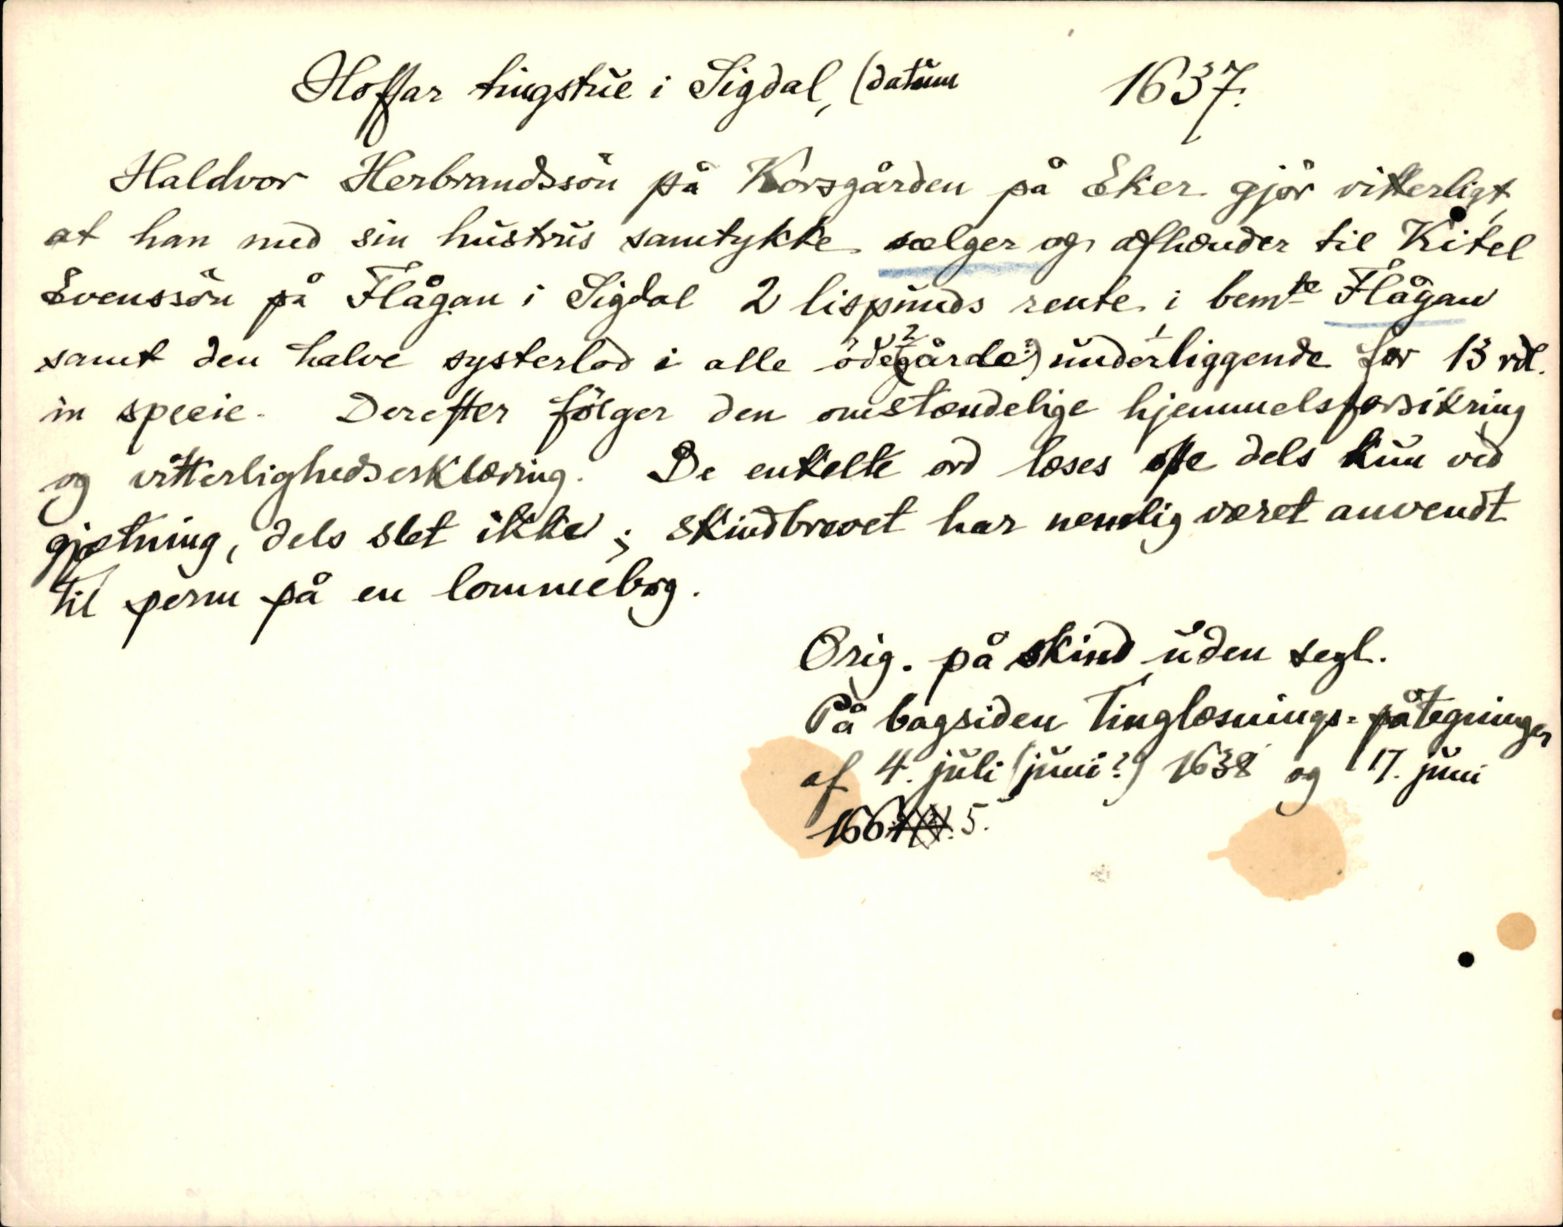 Hoffar tingstue i Sigdal, (datum 1637.
Haldvor Herbrandssön på Korsgården på Eker gjör vitterligt,
at han med sin hustrus samtykke sælger og afhænder til Kitel
Svenssön på Flågan i Sigdal 2 lispunds rente i bemte Flågan
samt den halve systerlod i alle ödegårde(?) underliggende for 13 rdl.
in specie. Derefter fölger den omstændelige hjemmelsforsikring
og vitterlighedserklæring. De enkelte ord læses ofte dels kun ved
gjætning, dels slet ikke; skindbrevet har nemlig været anvendt
til perm på en lommebog.
Orig. på skind uden segl.
På bagsiden Tinglæsnings-påtegninger
af 4. juli (juni?) 1638 og 17. juni
166 5.